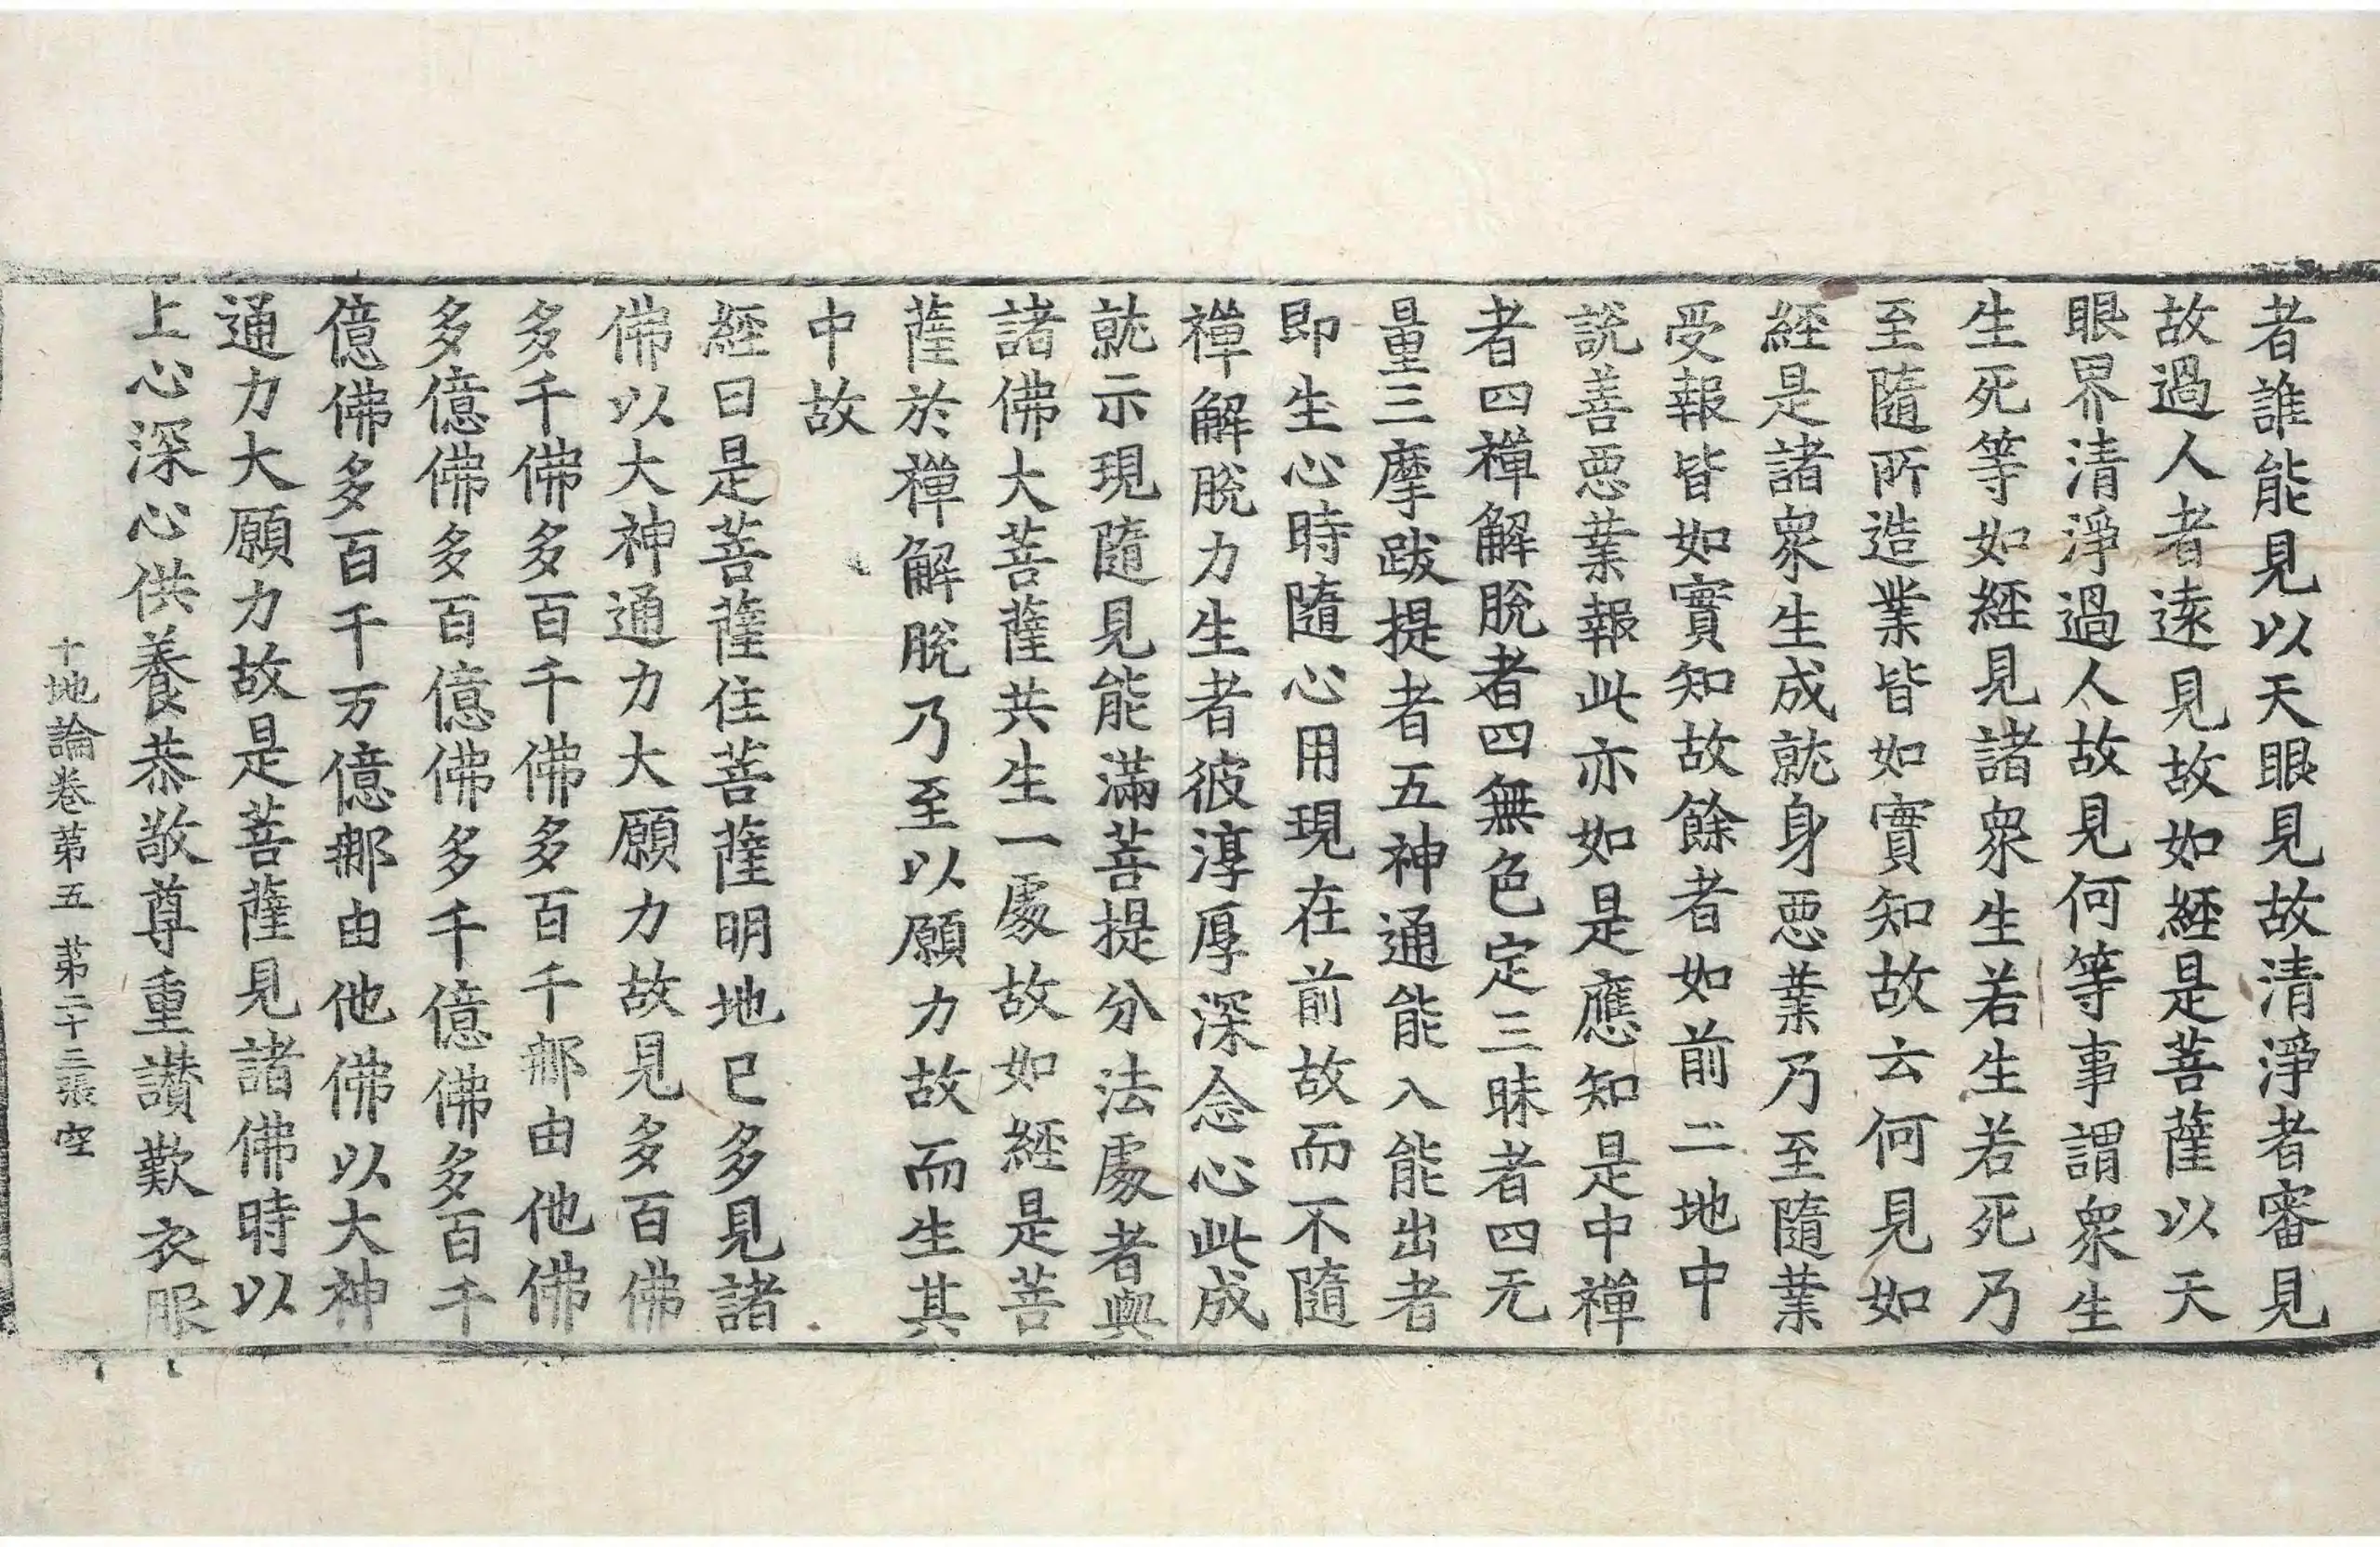 者誰能見以天眼見故清淨者審見
故過人者遠見故如經是菩薩以天
眼界清淨過人故見何等事謂衆生
生死等如經見諸衆生若生若死乃
至隨所造業皆如實知故云何見如
經是諸衆生成就身惡業乃至隨業
受報皆如實知故餘者如前二地中
說善惡業報此亦如是應知是中禪
者四禪解脫者四無色定三昧者四无
量三摩跋提者五神通能入能出者
即生心時隨心用現在前故而不隨
禪解脫力生者彼淳厚深念心此成
就示現隨見能滿菩提分法處者與
諸佛大菩薩共生一處故如經是菩
薩於禪解脫乃至以願力故而生其
中故
經曰是菩薩住菩薩明地已多見諸
佛以大神通力大願力故見多百佛
多千佛多百千佛多百千那由他佛
多億佛多百億佛多千億佛多百千
億佛多百千万億那由他佛以大神
通力大願力故是菩薩見諸佛時以
上心深心供養恭敬尊重讃歎衣服
十地論卷第五 第二十三張 空